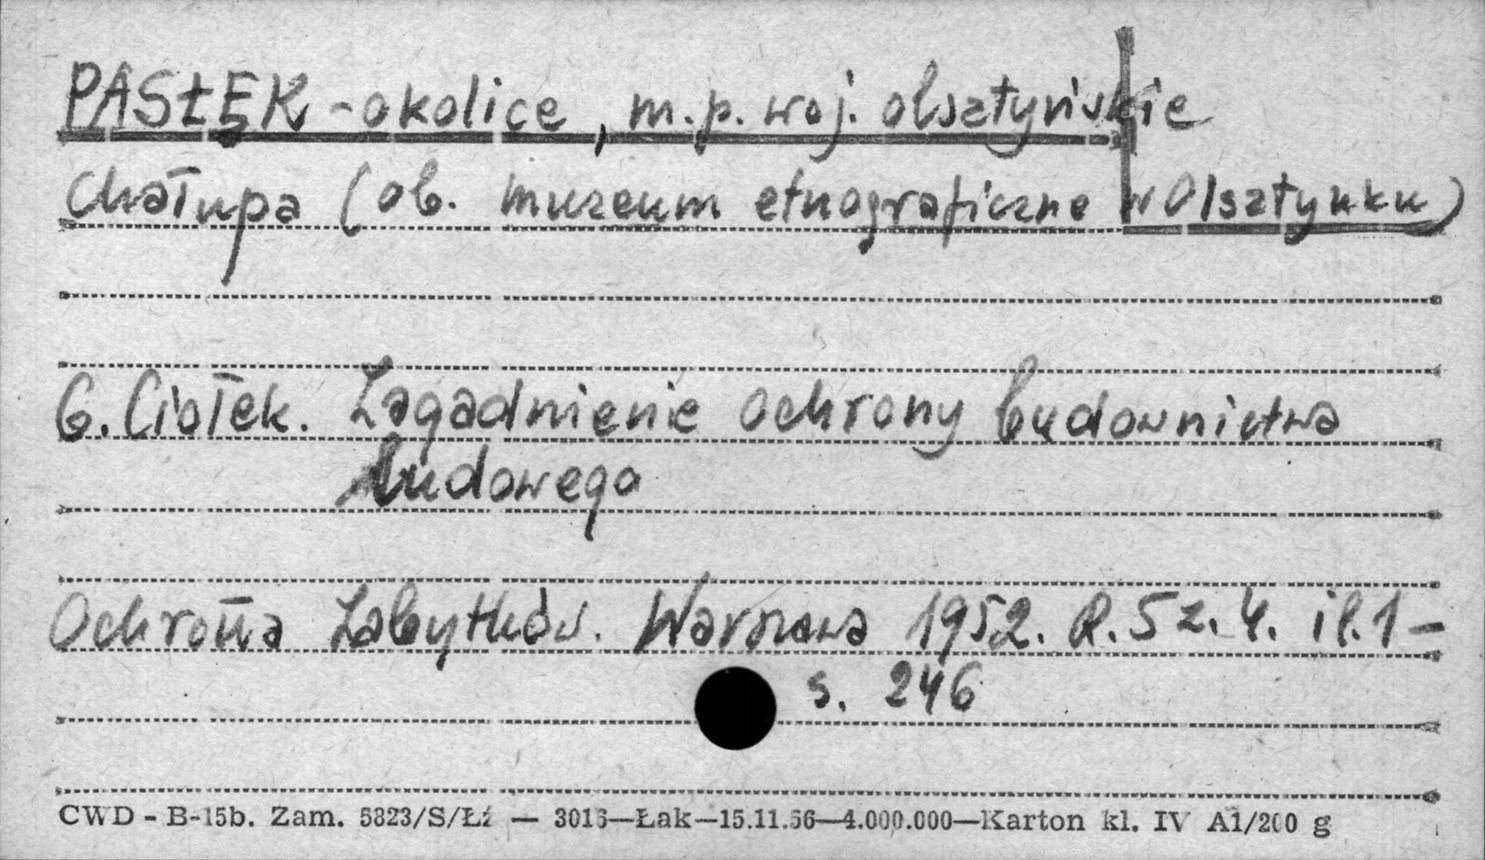 PASŁĘK - okolice, m.p. woj. olsztyńskie
Chałupa (ob. muzeum etnograficzne w Olsztynku)
G. Ciołek. Zagadnienie ochrony budownictwa
ludowego
Ochrona Zabytków. Warszawa 1952. R.5 z.4. il.1-
s. 246
CWD - B-15b. Zam. 5823/S/Łż — 3016—Łak—15.11.56—4.000.000—Karton kl. IV A1/200 g